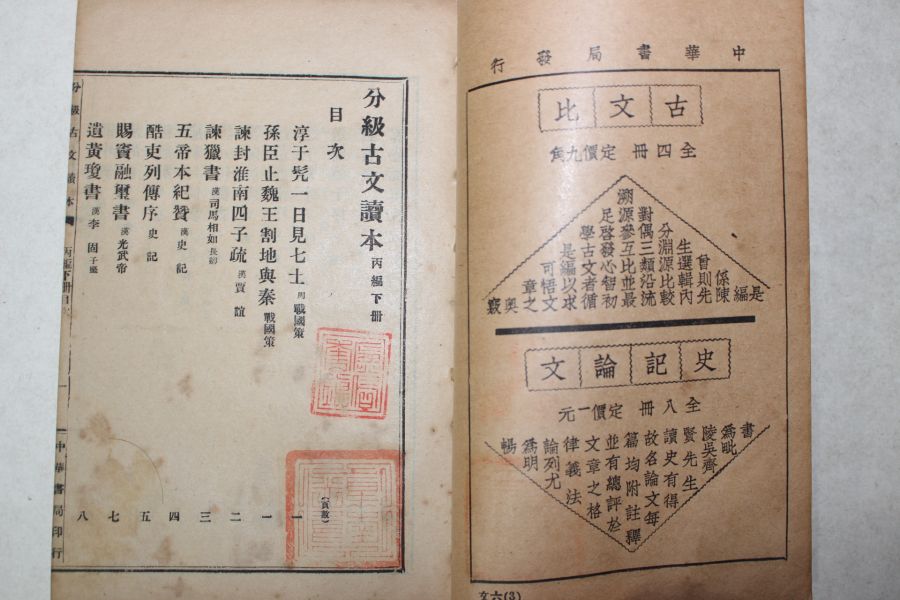 中華書局發行
古文比
全四冊 定價九角
是編
係陳
曾則先
生選輯內
分淵源比較
對偶三類沿流
溯源參互比並最
足啓發心智初
學古文者循
是編以求
可悟文
章之
奧
竅
史記論文
全八冊 定價一元
書
爲毗
陵吳齊
賢先生
讀史有得
故名論文每
篇均附註釋
並有總評於
文章之格
律義法
論列尤
爲明
暢
文六(3)
分級古文讀本 丙編下册
目次
(頁數)
淳于髠一日見七士 周戰國策 一
孫臣止魏王割地與秦 戰國策 一
諫封淮南四子疏 漢賈誼 二
諫獵書 漢司馬相如長卿 三
五帝本紀贊 漢史記 四
酷吏列傳序 史記 五
賜竇融璽書 漢光武帝 七
遺黃瓊書 漢李固子堅 八
分級古文讀本 丙編下冊目次 一 中華書局印行